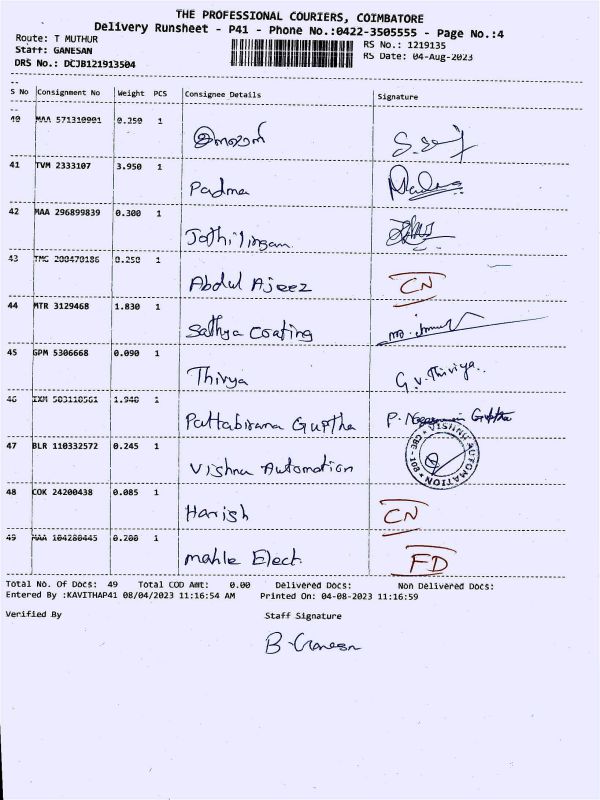 THE PROFESSIONAL COURIERS, COIMBATORE
Delivery Runsheet - P41 - Phone No.:0422-3505555 - Page No.:4
Route: T MUTHUR
RS No.: 1219135
Staff: GANESAN
RS Date: 04-Aug-2023
DRS No.: DCJB121913504
S No Consignment No Weight PCS Consignee Details Signature
40 MAA 571310901 0.250 1
41 TVM 2333107 3.950 1 Padma
42 MAA 296899839 0.300 1 Jothilingam
43 TMC 200470186 0.250 1 Abdul Ajeez CN
44 MTR 3129468 1.830 1 Sathya Coating
45 GPM 5306668 0.090 1 Thivya G.V.Thiviya.
46 IXM 503110561 1.940 1 Pattabirama Guptha P. Guptha
47 BLR 110332572 0.245 1 Vishnu Automation VISHNU AUTOMATION
48 COK 24200438 0.085 1 Harish CN
49 MAA 104280445 0.200 1 Mahle Elect. FD
Total No. Of Docs: 49 Total COD Amt: 0.00 Delivered Docs: Non Delivered Docs:
Entered By :KAVITHAP41 08/04/2023 11:16:54 AM Printed On: 04-08-2023 11:16:59
Verified By Staff Signature
B. Ganesn